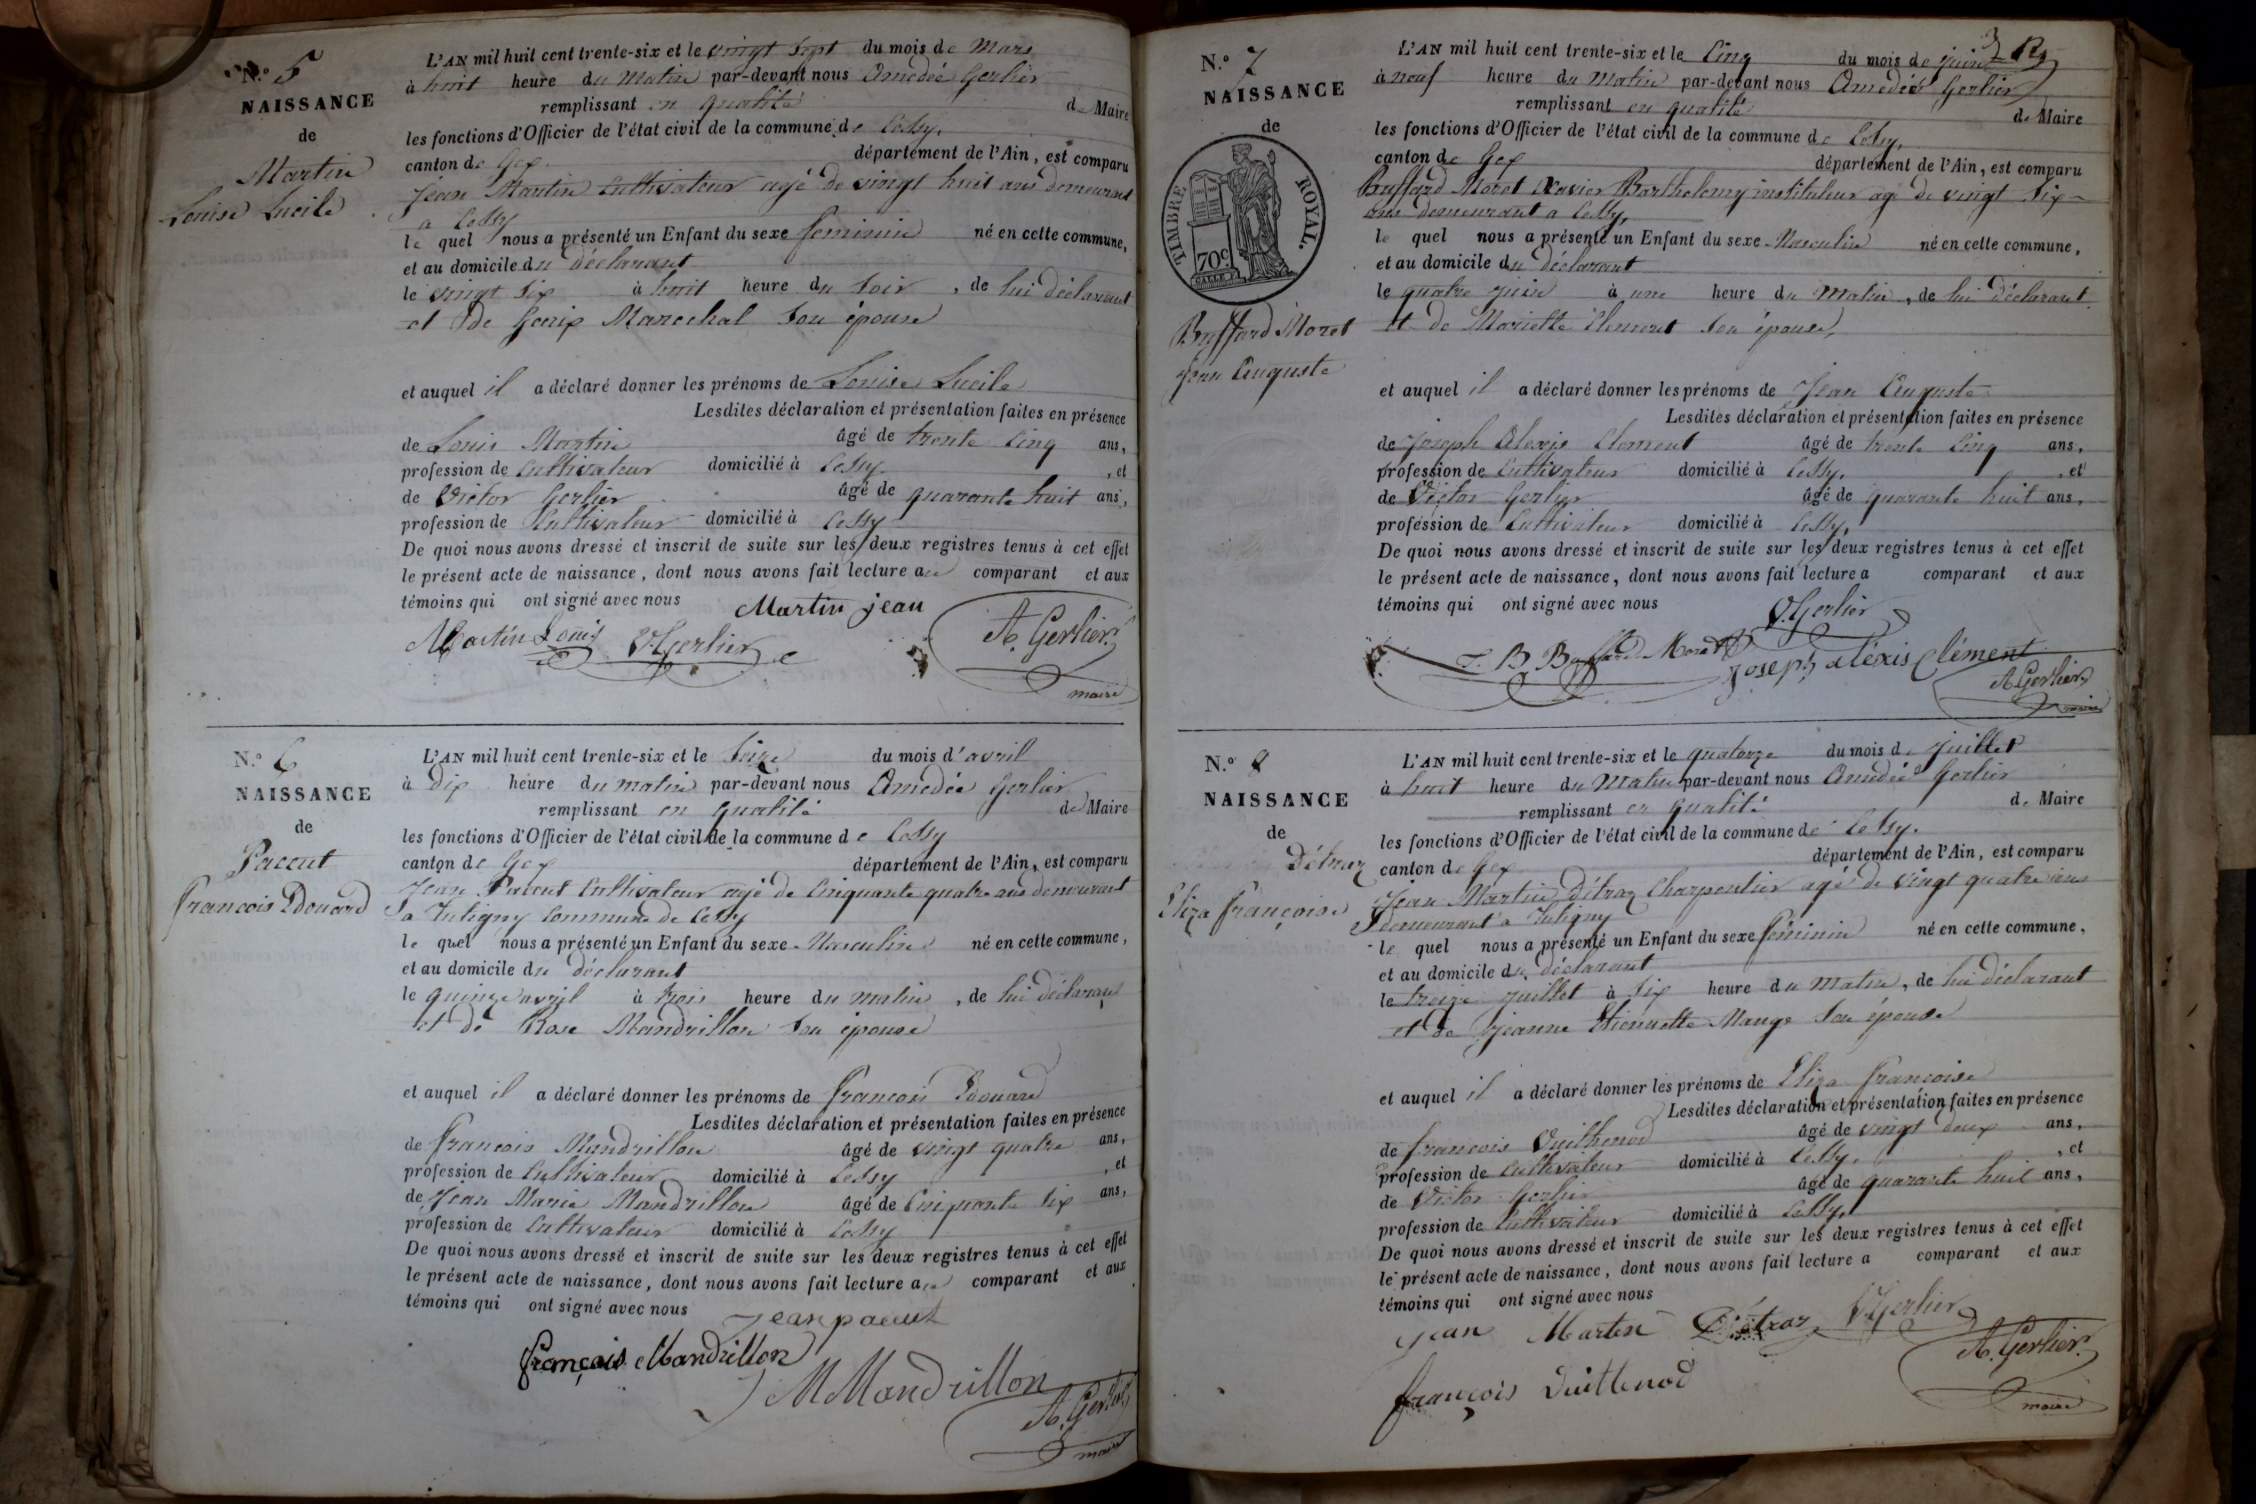 N.º 5
NAISSANCE
de
Martin
Louise Lucile
L'AN mil huit cent trente-six et le vingt sept du mois de Mars
à huit heure du Matin par-devant nous Amedée Gerlier
remplissant en qualité de Maire
les fonctions d'Officier de l'état civil de la commune de Cessy,
canton de Gex département de l'Ain, est comparu
Jean Martin Cultivateur agé de vingt huit ans demeurant
a Cessy
le quel nous a présenté un Enfant du sexe feminin né en cette commune,
et au domicile du déclarant
le vingt six à huit heure du Soir, de lui déclarant
et de Marechal Son épouse
et auquel il a déclaré donner les prénoms de Louise Lucile
Lesdites déclaration et présentation faites en présence
de Louis Martin âgé de trente Cinq ans,
profession de Cultivateur domicilié à Cessy, et
de Victor Gerlier âgé de quarante huit ans,
profession de Cultivateur domicilié à Cessy
De quoi nous avons dressé et inscrit de suite sur les deux registres tenus à cet effet
le présent acte de naissance, dont nous avons fait lecture au comparant et aux
témoins qui ont signé avec nous Martin jean
Martin Louis V. Gerlier A. Gerlier
maire
N.º 6
NAISSANCE
de
Paccut
François Edouard
L'AN mil huit cent trente-six et le Seize du mois d'avril
à dix heure du matin par-devant nous Amedée Gerlier
remplissant en qualité de Maire
les fonctions d'Officier de l'état civil de la commune de Cessy
canton de Gex département de l'Ain, est comparu
Jean Paccut Cultivateur agé de Cinquante quatre ans demeurant
a Tutigny Commune de Cessy
le quel nous a présenté un Enfant du sexe Masculin né en cette commune,
et au domicile du déclarant
le quinze avril à trois heure du matin, de lui déclarant
et de Rose Mandrillon Son épouse
et auquel il a déclaré donner les prénoms de François Edouard
Lesdites déclaration et présentation faites en présence
de François Mandrillon âgé de vingt quatre ans,
profession de Cultivateur domicilié à Cessy, et
de Jean Marie Mandrillon âgé de Cinquante Six ans,
profession de Cultivateur domicilié à Cessy
De quoi nous avons dressé et inscrit de suite sur les deux registres tenus à cet effet
le présent acte de naissance, dont nous avons fait lecture au comparant et aux
témoins qui ont signé avec nous
jean paccut
françois Mandrillon
J M Mandrillon
A. Gerlier
maire
N.º 7
NAISSANCE
de
TIMBRE ROYAL.
70 c.
Buffard Moret
Jean Auguste
L'AN mil huit cent trente-six et le Cinq du mois de juin
à neuf heure du Matin par-devant nous Amedée Gerlier
remplissant en qualité de Maire
les fonctions d'Officier de l'état civil de la commune de Cessy,
canton de Gex département de l'Ain, est comparu
Buffard Moret Xavier Barthelemy instituteur age de vingt Six
ans demeurant a Cessy,
le quel nous a présenté un Enfant du sexe Masculin né en cette commune,
et au domicile du déclarant
le quatre juin à une heure du Matin, de lui déclarant
et de Mariette Clement Son épouse,
et auquel il a déclaré donner les prénoms de Jean Auguste
Lesdites déclaration et présentation faites en présence
de Joseph Alexis Clement âgé de trente Cinq ans,
profession de Cultivateur domicilié à Cessy, et
de Victor Gerlier âgé de quarante huit ans,
profession de Cultivateur domicilié à Cessy,
De quoi nous avons dressé et inscrit de suite sur les deux registres tenus à cet effet
le présent acte de naissance, dont nous avons fait lecture a comparant et aux
témoins qui ont signé avec nous V. Gerlier
Buffard Moret Joseph aléxis Clément
A. Gerlier
maire
N.º 8
NAISSANCE
de
Détraz
Eliza françoise
L'AN mil huit cent trente-six et le quatorze du mois de juillet
à huit heure du Matin par-devant nous Amedée Gerlier
remplissant en qualité de Maire
les fonctions d'Officier de l'état civil de la commune de Cessy.
canton de Gex département de l'Ain, est comparu
Jean Martin Détraz Charpentier agé de vingt quatre ans
demeurant a Tutigny
le quel nous a présenté un Enfant du sexe féminin né en cette commune,
et au domicile du déclarant
le treize juillet à Six heure du Matin, de lui déclarant
et de Jeanne Etiennette Son épouse
et auquel il a déclaré donner les prénoms de Eliza françoise
Lesdites déclaration et présentation faites en présence
de françois Vuilhenod âgé de vingt deux ans,
profession de Cultivateur domicilié à Cessy, et
de Victor Gerlier âgé de quarante huit ans,
profession de Cultivateur domicilié à Cessy,
De quoi nous avons dressé et inscrit de suite sur les deux registres tenus à cet effet
le présent acte de naissance, dont nous avons fait lecture a comparant et aux
témoins qui ont signé avec nous
jean Martin Détraz V. Gerlier
A. Gerlier
maire
françois